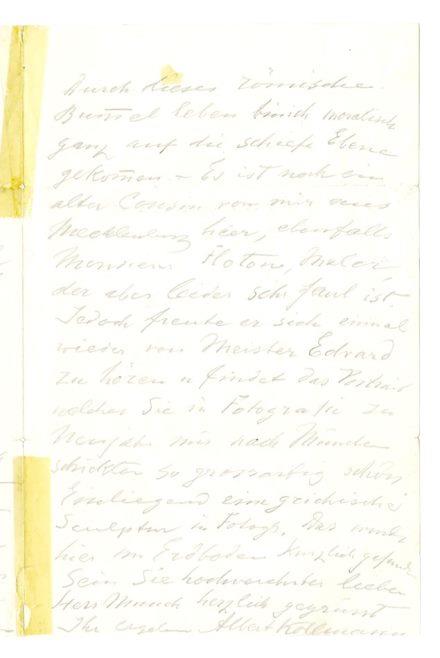 Durch dieses römische
Bummelleben bin ich moralisch
ganz auf die schiefe Ebene
gekommen. – Es ist noch ein
alter Cousin von mir aus
Mecklenburg hier, ebenfalls
Monsieur Flotow, Maler,
der aber leider sehr faul ist.
Jedoch freute er sich einmal
wieder von Meister Edvard
zu hören u findet das Portrait
welches Sie in Fotografie zu
Neujahr mir nach München
schickten so grossartig schön
Einliegend eine griechische
Sculptur in Fotogr. Das wurde
hier im Erdboden kürzlich gefunden
Sein Sie hochverehrter lieber
Herr Munch herzlich gegrüsst
Ihr ergebener Albert Kollmann